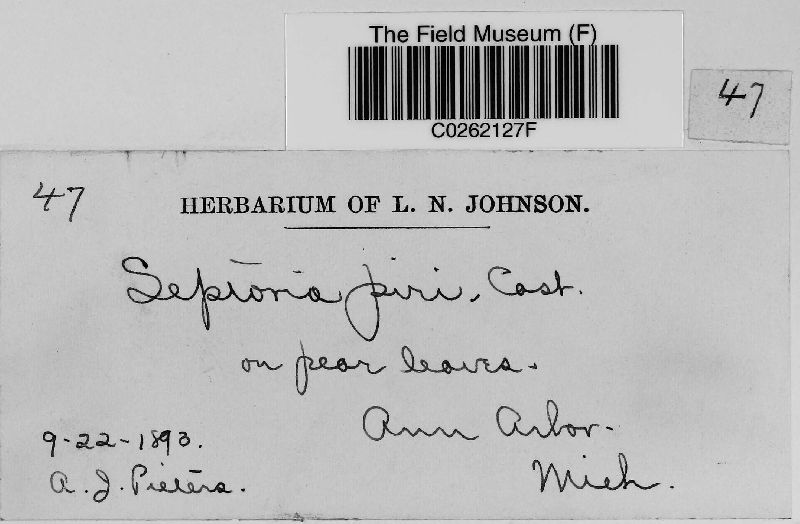 The Field Museum (F)
C0262127F
47
47
HERBARIUM OF L. N. JOHNSON.
Septoria piri, Cast.
on pear leaves.
Ann Arbor.
Mich.
9-22-1893.
A. J. Pieters.